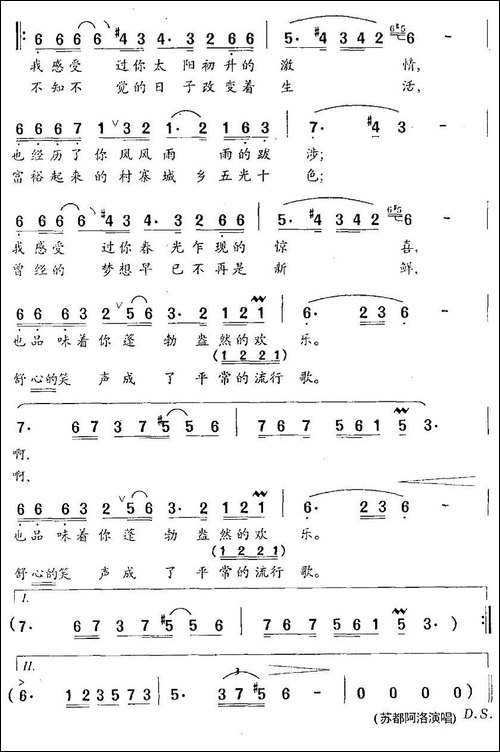 6 6 6 6 6 #4 3 4· 3 2 6 6 | 5· #4 3 4 2 6#5 6 |
我感受 过你太阳初升的 激 情,
不知不 觉的日子改变着 生 活,
6 6 6 7 1 ∨3 2 1· 2 1 6 3 | 7· #4 3 |
也经历了你风风雨 雨的跋 涉;
富裕起来的村寨城 乡五光十 色;
6 6 6 6 6 #4 3 4· 3 2 6 6 | 5· #4 3 4 2 6#5 6 |
我感受 过你春光乍现的 惊 喜,
曾经的 梦想早已不再是 新 鲜,
6 6 6 6 3 2 ∨5 6 3· 2 1 2 1 | 6· 2 3 6 |
也品味着你蓬 勃盎然的欢 乐。
(1 2 2 1)
舒心的笑 声成 了 平常的流行 歌。
7· 6 7 3 7 #5 5 6 | 7 6 7 5 6 1 5 3· |
啊.
啊.
6 6 6 6 3 2 ∨5 6 3· 2 1 2 1 | 6· 2 3 6 |
也品味着你蓬 勃盎然的欢 乐。
(1 2 2 1)
舒心的笑 声成 了 平常的流行 歌。
I.
(7· 6 7 3 7 #5 5 6 | 7 6 7 5 6 1 5 3· ) :‖
II.
(6· 1 2 3 5 7 3 | 5· 3 7 #5 6 - | 0 0 0 0)
(苏都阿洛演唱) D.S.